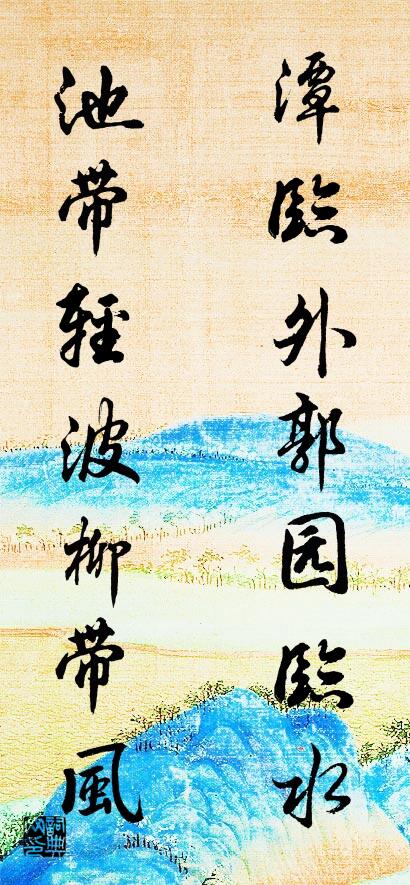 潭臨外郭园臨水
池帶輕波柳帶風